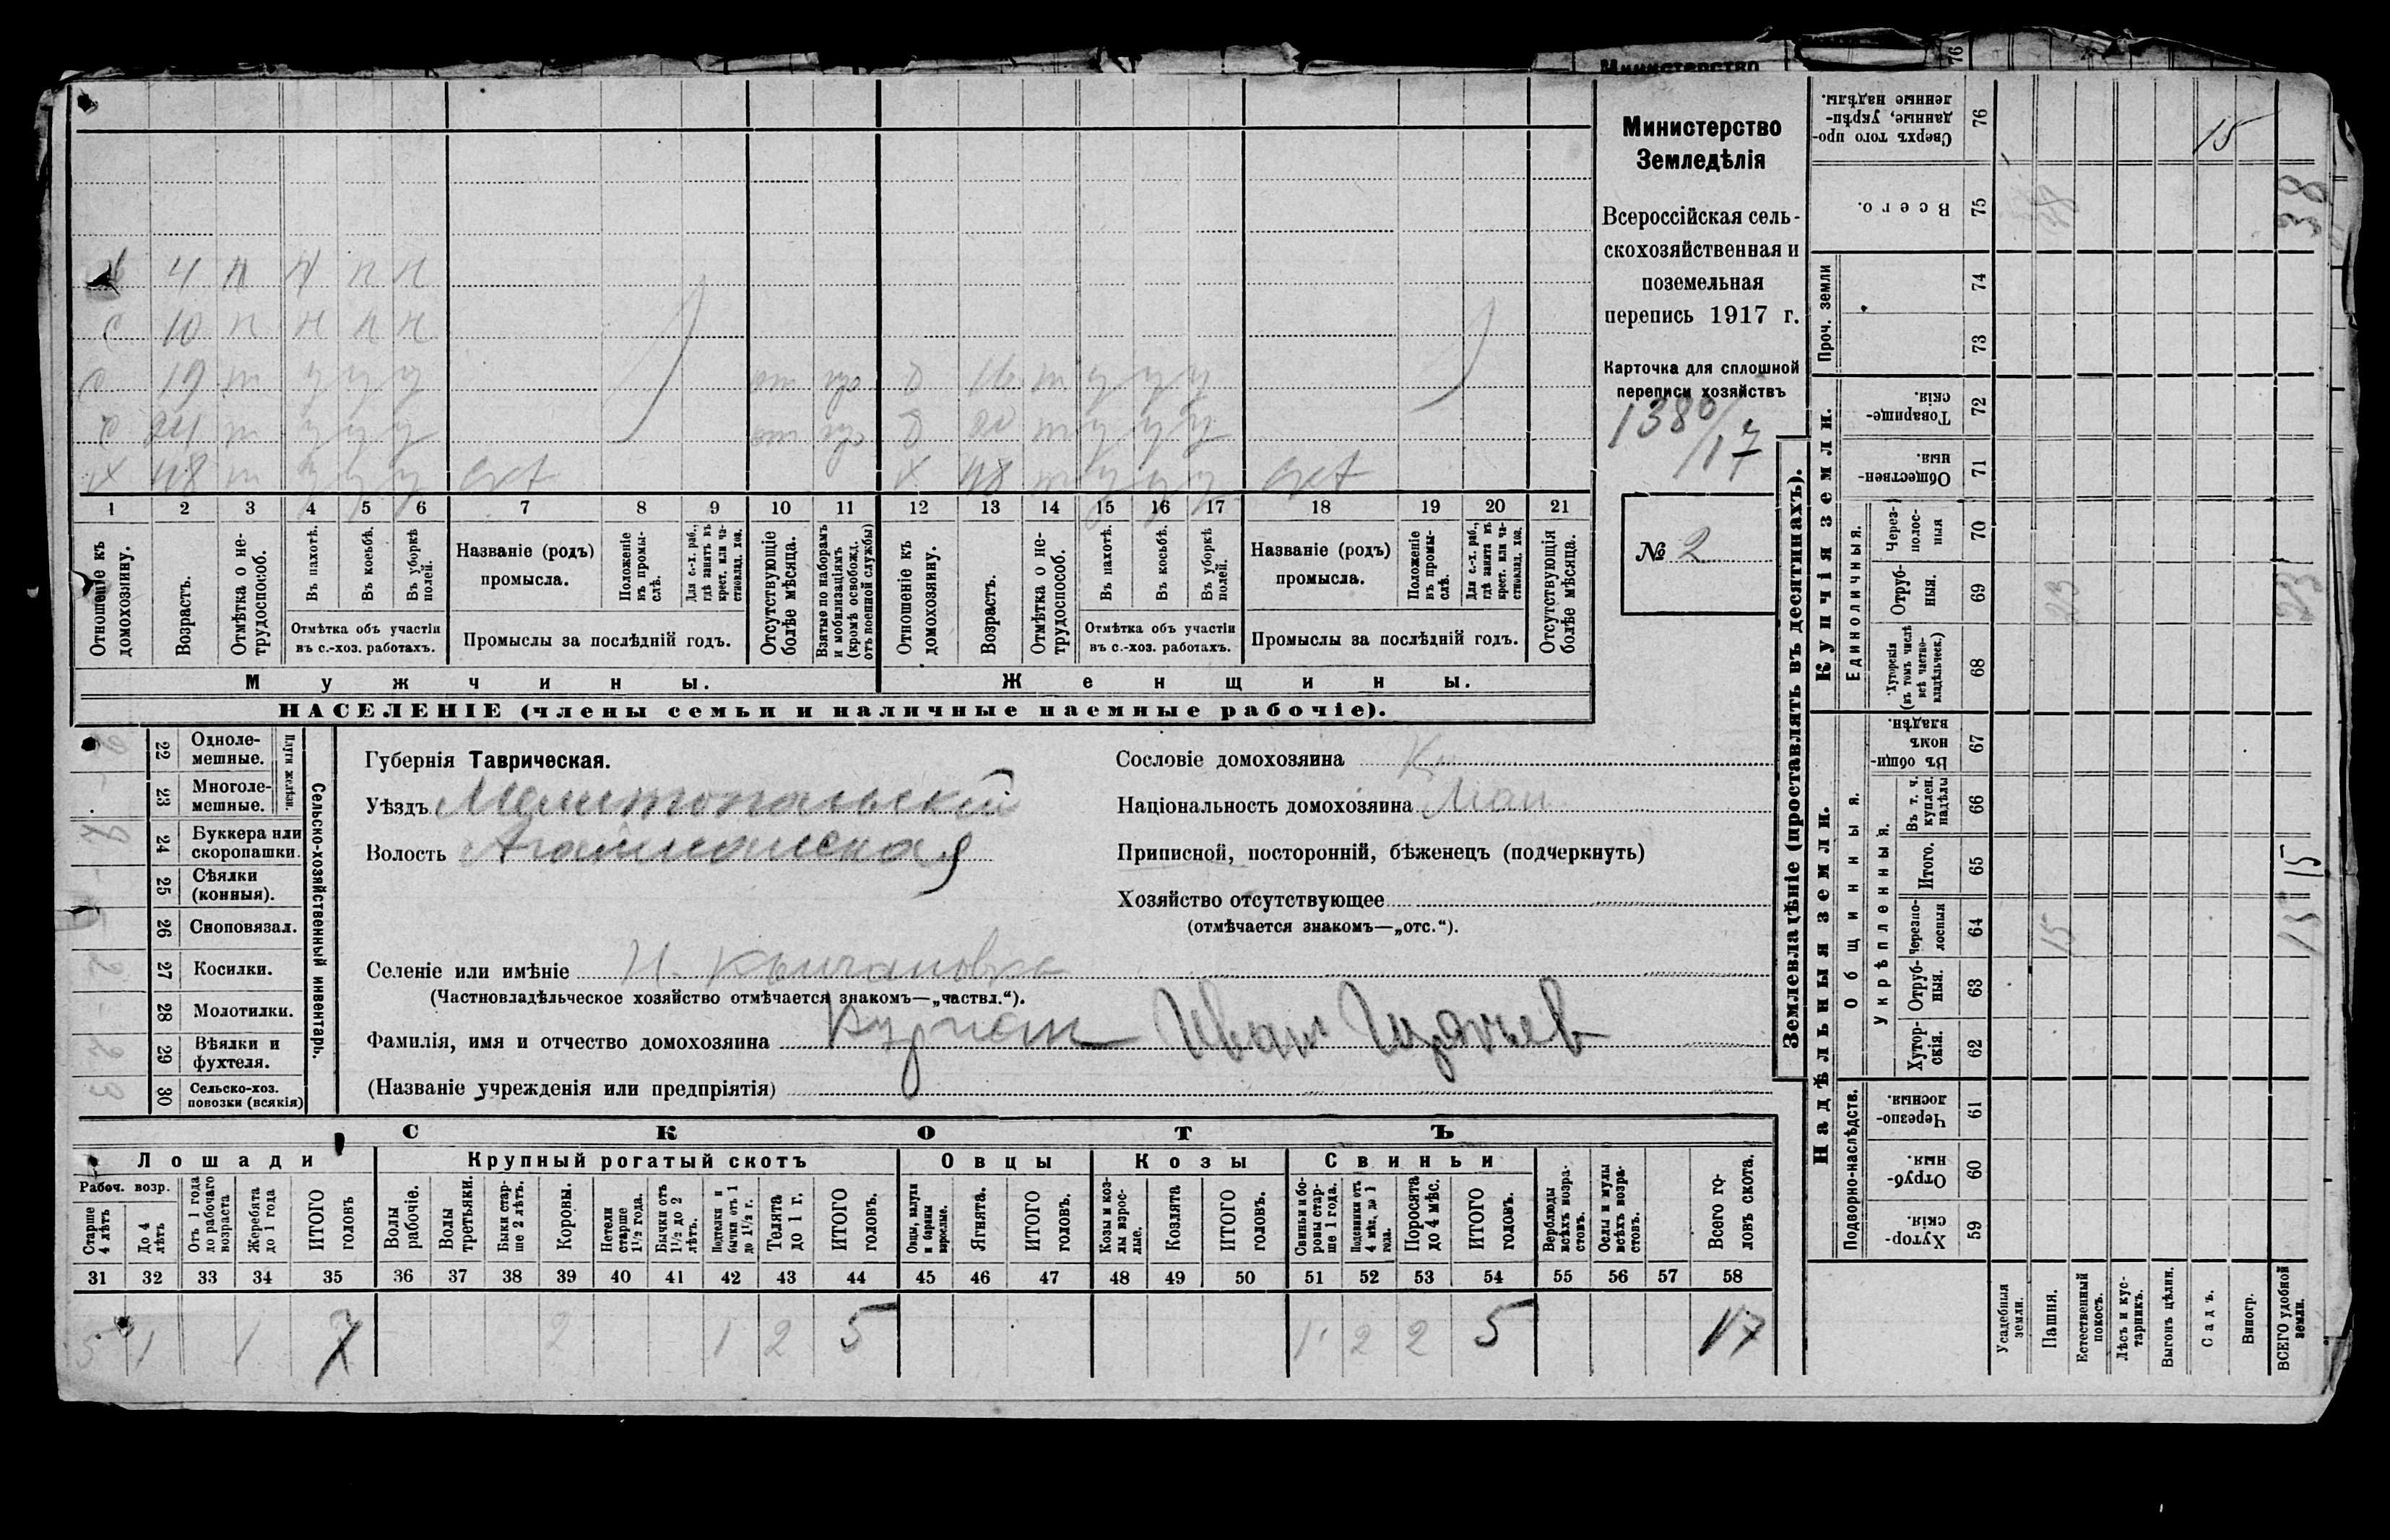 Министерство
4 н н н н
с 10 н н н н
с 19 т у у у от 16 т у у у
т у у у от т у у у
х 48 т у у у х 48 т у у у
1 2 3 4 5 6 7 8 9 10 11 12 13 14 15 16 17 18 19 20 21
Отношеніе къ домохозяину.
Возрастъ.
Отмѣтка о не-
трудоспособ.
Въ пахотѣ.
Въ косьбѣ.
Въ уборкѣ
полей.
Отмѣтка объ участіи
въ с.-хоз. работахъ.
Названіе (родъ)
промысла.
Положеніе
въ промы-
слѣ.
Для с.-х. раб.,
гдѣ занятъ въ
крест. или ча-
стновлад. хоз.
Промыслы за послѣдній годъ.
Отсутствующіе
болѣе мѣсяца.
Взятые по наборамъ
и мобилизаціямъ
(кромѣ освобожд.
отъ военной службы)
Отношеніе къ
домохозяину.
Возрастъ.
Отмѣтка о не-
трудоспособ.
Въ пахотѣ.
Въ косьбѣ.
Въ уборкѣ
полей.
Отмѣтка объ участіи
въ с.-хоз. работахъ.
Названіе (родъ)
промысла.
Положеніе
въ промы-
слѣ.
Для с.-х. раб.,
гдѣ занята въ
крест. или ча-
стновлад. хоз.
Промыслы за послѣдній годъ.
Отсутствующія
болѣе мѣсяца.
Мужчины.
Женщины.
НАСЕЛЕНІЕ (члены семьи и наличные наемные рабочіе).
Министерство
Земледѣлія
Всероссійская сель-
скохозяйственная и
поземельная
перепись 1917 г.
Карточка для сплошной
переписи хозяйствъ
1380/17
№ 2
22 Одноле-
мешные.
23 Многоле-
мешные.
Плуги желѣзн.
24 Буккера или
скоропашки.
25 Сѣялки
(конныя).
26 Сноповязал.
27 Косилки.
28 Молотилки.
29 Вѣялки и
фухтеля.
30 Сельско-хоз.
повозки (всякія)
Сельско-хозяйственный инвентарь.
Губернія Таврическая.
Уѣздъ Мелитопольскій
Волость Агайманская
Селеніе или имѣніе
(Частновладѣльческое хозяйство отмѣчается знакомъ—„частвл.“).
Фамилія, имя и отчество домохозяина Иван
(Названіе учрежденія или предпріятія)
Сословіе домохозяина К
Національность домохозяина Мал
Приписной, посторонній, бѣженецъ (подчеркнуть)
Хозяйство отсутствующее
(отмѣчается знакомъ—„отс.“).
СКОТЪ
Лошади
Крупный рогатый скотъ
Овцы
Козы
Свиньи
Рабоч. возр.
Старше
4 лѣтъ
До 4
лѣтъ
Отъ 1 года
до рабочаго
возраста
Жеребята
до 1 года
ИТОГО
головъ
Волы
рабочіе.
Волы
третьяки.
Быки стар-
ше 2 лѣтъ.
Коровы.
Нетели
старше
1½ года.
Бычки отъ
1½ до 2
лѣтъ.
Подтелки и
бычки отъ 1
до 1½ г.
Телята
до 1 г.
ИТОГО
головъ.
Овцы, валухи
и бараны
взрослые.
Ягнята.
ИТОГО
головъ.
Козы и коз-
лы взрос-
лые.
Козлята
ИТОГО
головъ.
Свиньи и бо-
ровы стар-
ше 1 года.
Подсвинки отъ
4 мѣс. до 1
года.
Поросята
до 4 мѣс.
ИТОГО
головъ.
Верблюды
всѣхъ возра-
стовъ.
Ослы и мулы
всѣхъ возра-
стовъ.
Всего го-
ловъ скота.
31 32 33 34 35 36 37 38 39 40 41 42 43 44 45 46 47 48 49 50 51 52 53 54 55 56 57 58
5 1 1 7 2 1 2 5 1 2 2 5 17
Землевладѣніе (проставлять въ десятинахъ).
Надѣльныя земли.
Купчія земли.
Проч. земли
Всего. 75
Сверхъ того про-
данные, укрѣп-
ленные надѣлы. 76
74
73
Товарище-
скія. 72
Обществен-
ныя. 71
Единоличныя.
Через-
полос-
ныя 70
Отруб-
ныя. 69
Хуторскія
(въ томъ числѣ
всѣ частно-
владѣльческ.) 68
Общинныя.
Въ общи-
номъ
владѣн. 67
Укрѣпленныя.
Въ т. ч.
куплен.
надѣлы 66
Итого. 65
Черезпо-
лосныя 64
Отруб-
ныя. 63
Хутор-
скія. 62
Подворно-наслѣдств.
Черезпо-
лосныя. 61
Отруб-
ныя. 60
Хутор-
скія. 59
Усадебныя
земли.
Пашня.
Естественный
покосъ.
Лѣсъ и кус-
тарникъ.
Выгонъ цѣлин.
Садъ.
Виногр.
ВСЕГО удобной
земли.
15
38 38
23 23
15
15 15
76